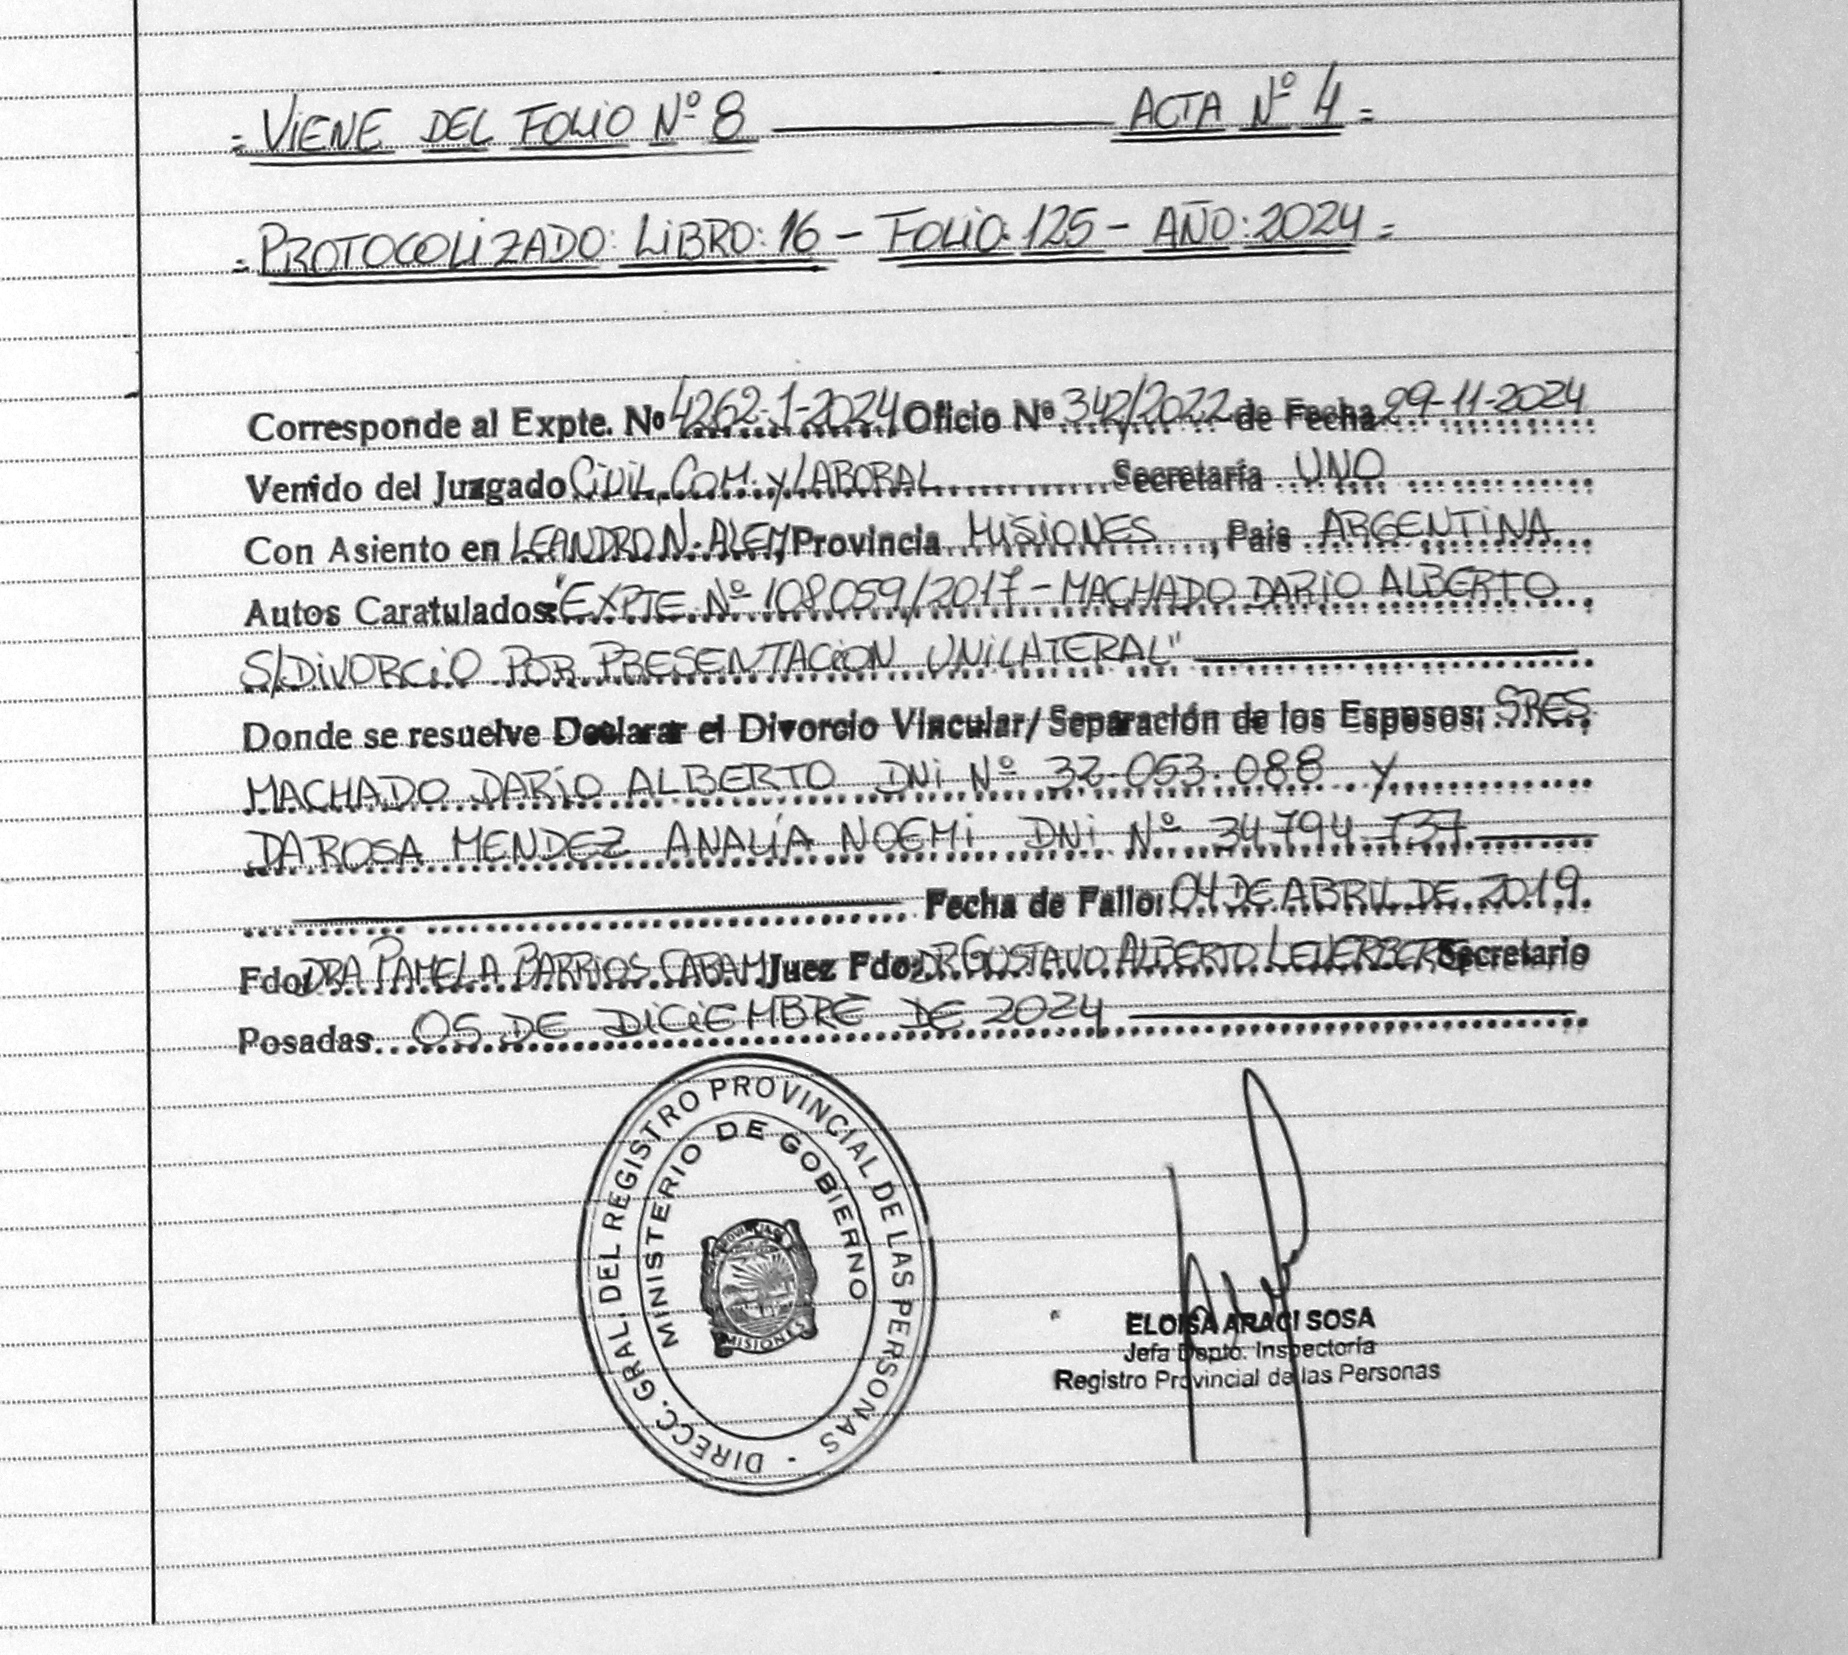 = VIENE DEL FOLIO Nº 8 ——— ACTA Nº 4 =
= PROTOCOLIZADO: LIBRO: 16 - FOLIO: 125 - AÑO: 2024 =
Corresponde al Expte. Nº 4262-1-2024 Oficio Nº 342/2022 de Fecha 29-11-2024
Venido del Juzgado CIVIL, COM. y LABORAL Secretaría UNO
Con Asiento en LEANDRO N. ALEM, Provincia MISIONES, Pais ARGENTINA
Autos Caratulados: "EXPTE Nº 108059/2017 - MACHADO DARIO ALBERTO
S/DIVORCIO POR PRESENTACION UNILATERAL"
Donde se resuelve Declarar el Divorcio Vincular/Separación de los Esposos: SRES
MACHADO DARIO ALBERTO DNI Nº 32.053.088 y
DAROSA MENDEZ ANALÍA NOEMI DNI Nº 34.794.737
Fecha de Fallo: 04 DE ABRIL DE 2019.
Fdo: DRA PAMELA BARRIOS Juez Fdo: DR GUSTAVO ALBERTO Secretario
Posadas 05 DE DICIEMBRE DE 2024
DIRECC. GRAL. DEL REGISTRO PROVINCIAL DE LAS PERSONAS -
MINISTERIO DE GOBIERNO
MISIONES
ELOISA ARACI SOSA
Jefa Depto. Inspectoría
Registro Provincial de las Personas